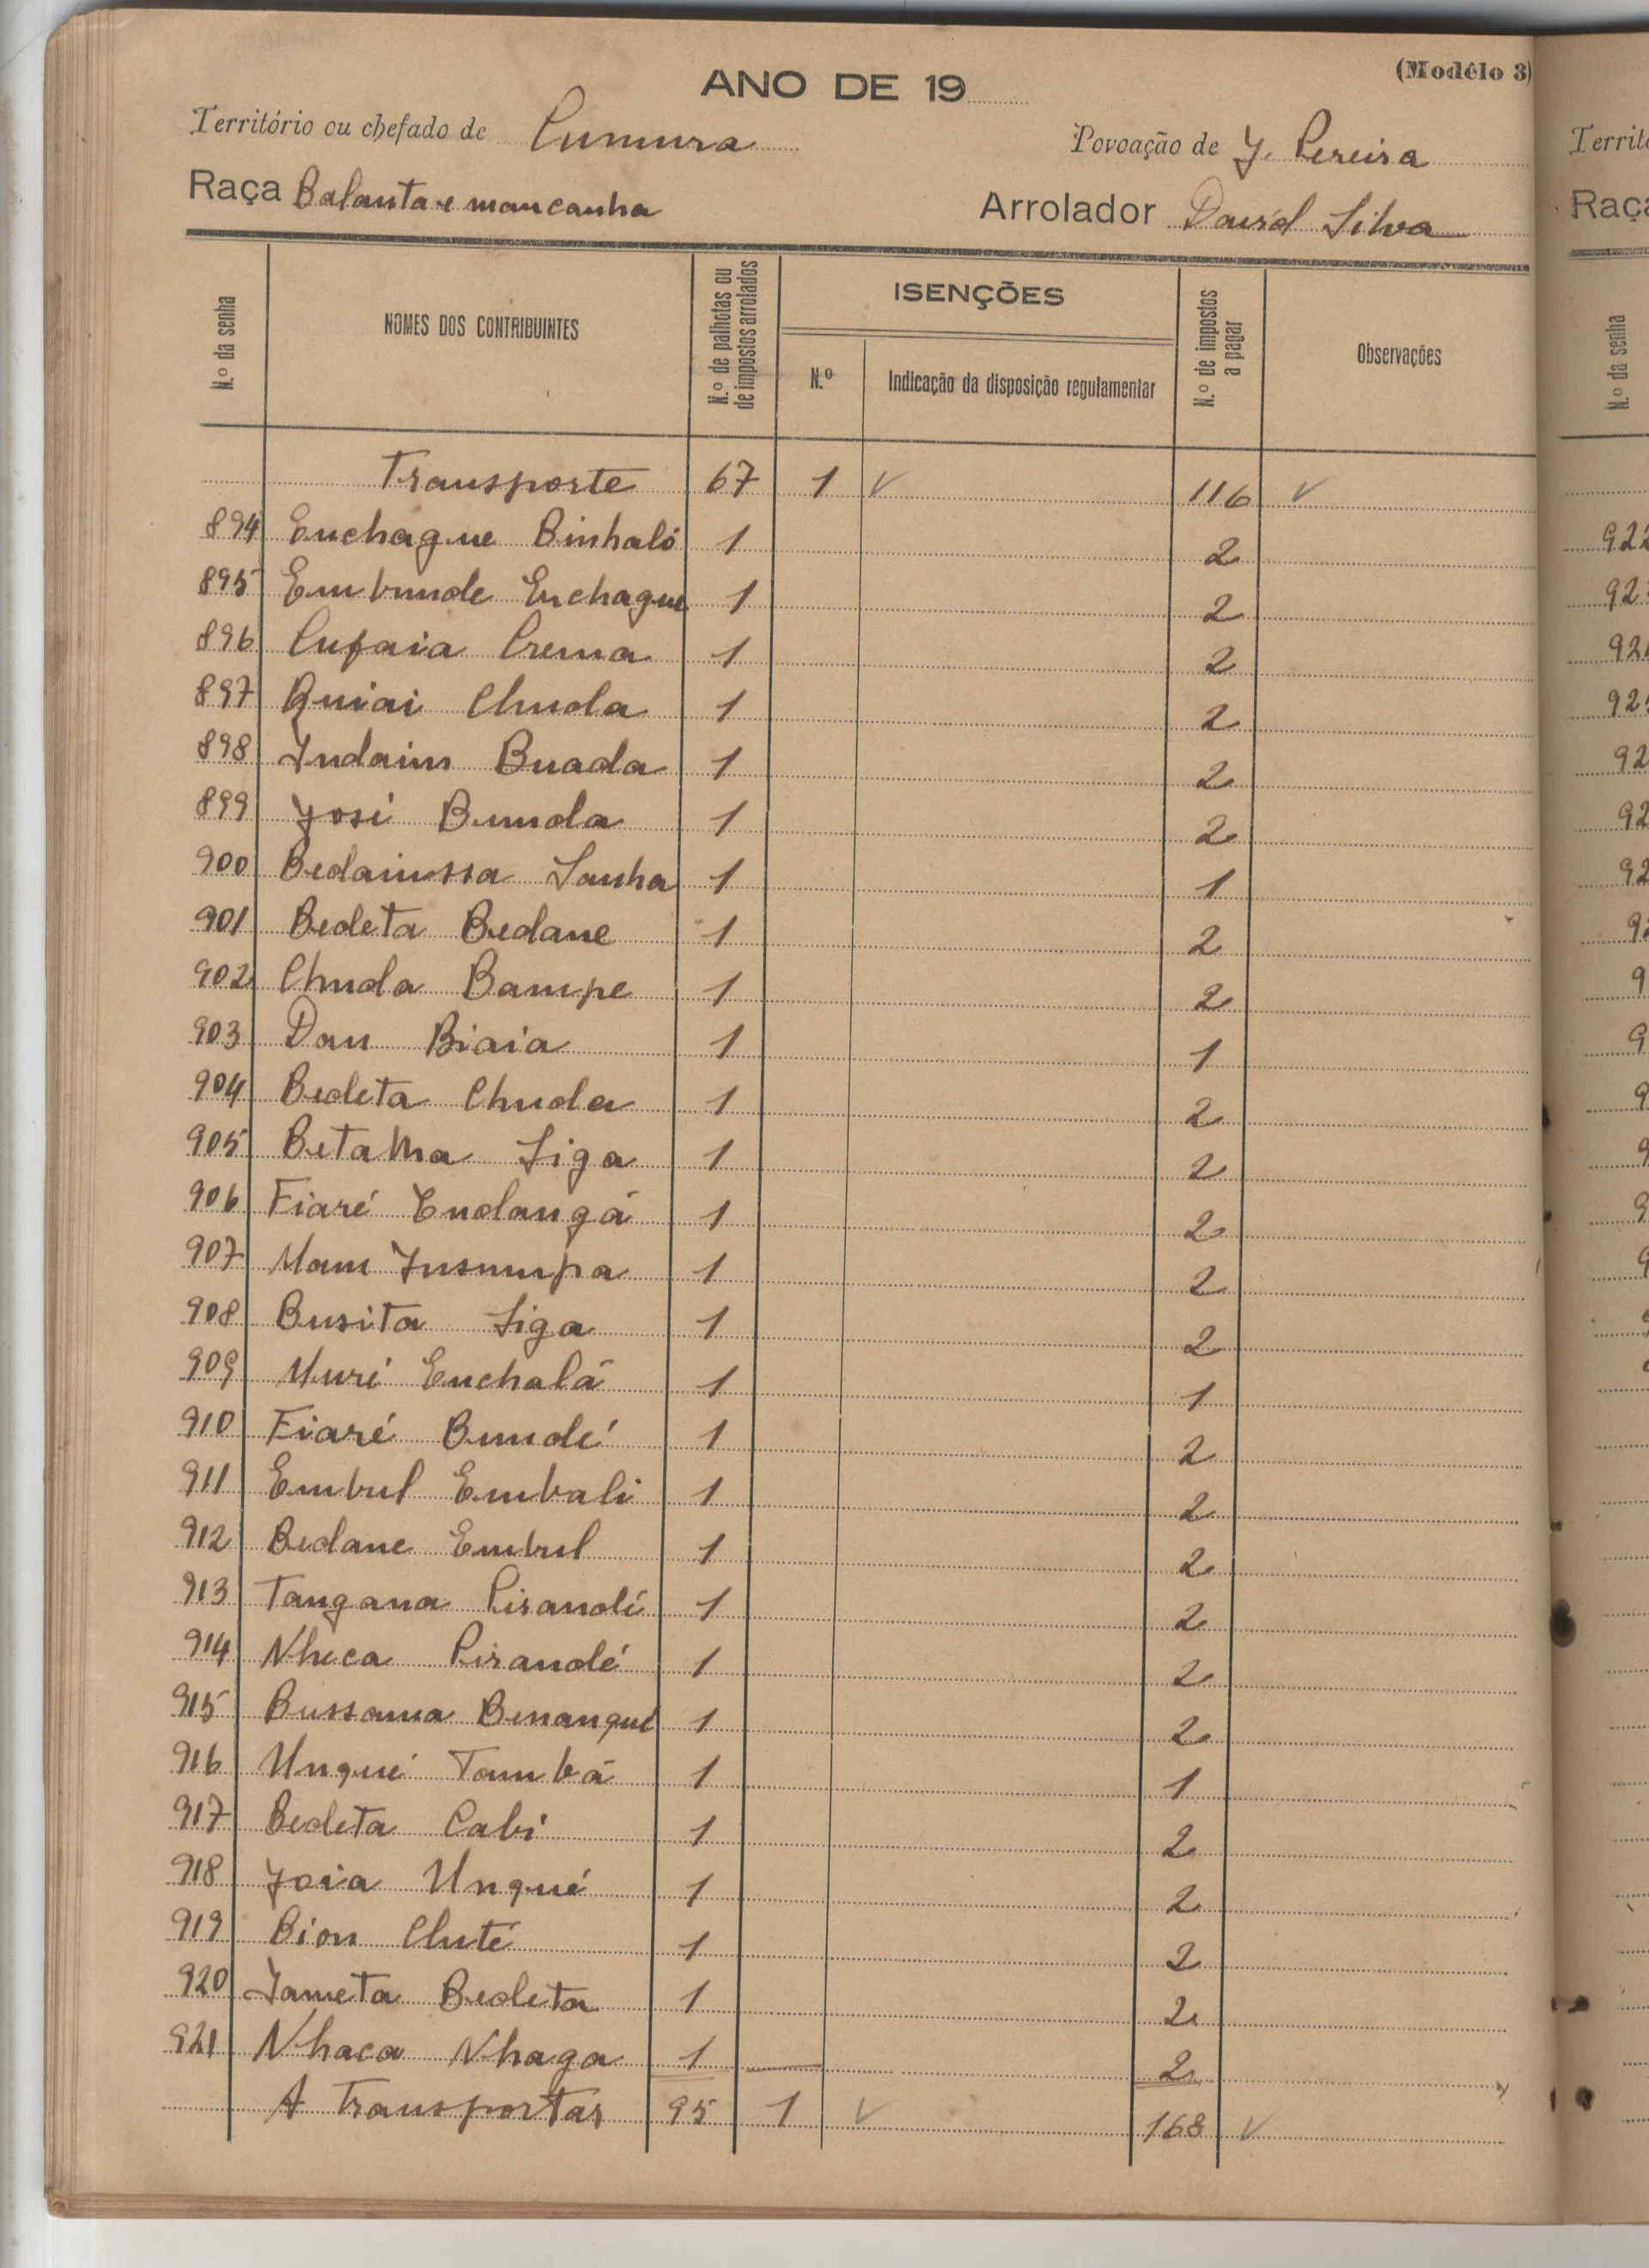 (Modêlo 3)
ANO DE 19
Território ou chefado de Cumura
Povoação de J. Pereira
Raça Balanta e mancanha
Arrolador David Silva
N.º da senha
NOMES DOS CONTRIBUINTES
N.º de palhotas ou de impostos arrolados
ISENÇÕES
N.º
Indicação da disposição regulamentar
N.º de impostos a pagar
Observações
Transporte 67 1 v 116 v
894 Enchague Binhaló 1 2
895 Embunde Enchague 1 2
896 Cufaia Crema 1 2
897 Quiai Chuda 1 2
898 Indaim Buada 1 2
899 José Bunda 1 2
900 Bedanussa Sanha 1 1
901 Bedeta Bedane 1 2
902 Chuda Bampe 1 2
903 Dan Biaia 1 1
904 Bedeta Chuda 1 2
905 Betakma Siga 1 2
906 Fiaré Endangá 1 2
907 Mam Insumpa 1 2
908 Busita Siga 1 2
909 Muré Enchalá 1 1
910 Fiaré Bundé 1 2
911 Embul Embali 1 2
912 Bedane Embul 1 2
913 Tangana Pirandé 1 2
914 Nheca Pirandé 1 2
915 Bussama Benangué 1 2
916 Unqué Tambá 1 1
917 Bedeta Cabi 1 2
918 Joia Unqué 1 2
919 Bion Chuté 1 2
920 Iameta Bedeta 1 2
921 Nhaca Nhaga 1 2
A Transportar 95 1 v 168 v